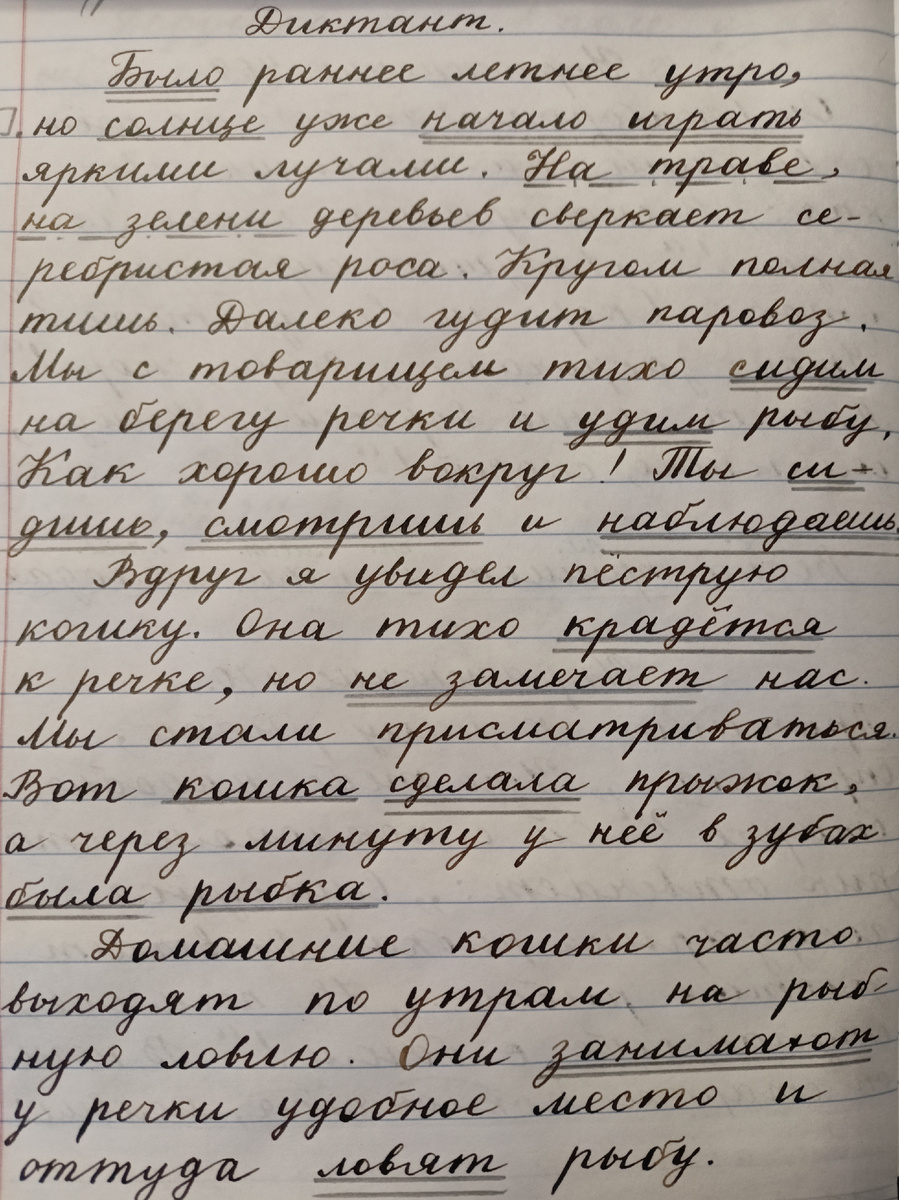 Диктант.
Было раннее летнее утро,
но солнце уже начало играть
яркими лучами. На траве,
на зелени деревьев сверкает се-
ребристая роса. Кругом полная
тишь. Далеко гудит паровоз.
Мы с товарищем тихо сидим
на берегу речки и удим рыбу.
Как хорошо вокруг! Ты си-
дишь, смотришь и наблюдаешь.
Вдруг я увидел пёструю
кошку. Она тихо крадётся
к речке, но не замечает нас.
Мы стали присматриваться.
Вот кошка сделала прыжок,
а через минуту у неё в зубах
была рыбка.
Домашние кошки часто
выходят по утрам на рыб-
ную ловлю. Они занимают
у речки удобное место и
оттуда ловят рыбу.